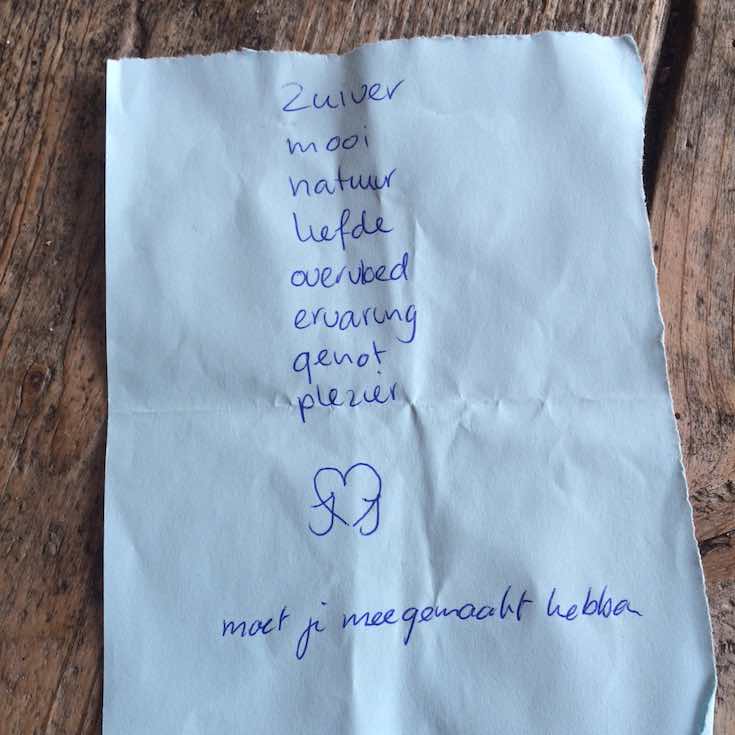 Zuiver
mooi
natuur
liefde
overvloed
ervaring
genot
plezier
moet je meegemaakt hebben